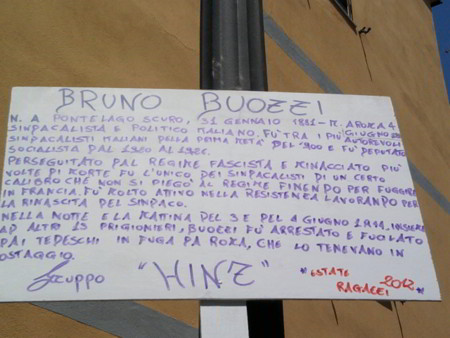 BRUNO BUOZZI
N. A PONTELAGO SCURO, 31 GENNAIO 1881 - M. A ROMA 4
GIUGNO DEL
SINDACALISTA E POLITICO ITALIANO. FU' TRA I PIU' AUTOREVOLI
SINDACALISTI ITALIANI DELLA PRIMA METÀ DEL '900 E FU' DEPUTATO
SOCIALISTA DAL 1920 AL 1926.
PERSEGUITATO DAL REGIME FASCISTA E MINACCIATO PIU'
VOLTE DI MORTE FU L'UNICO DEI SINDACALISTI DI UN CERTO
CALIBRO CHE NON SI PIEGO' AL REGIME FINENDO PER FUGGIRE
IN FRANCIA. FU' MOLTO ATTIVO NELLA RESISTENZA LAVORANDO PER
LA RINASCITA DEL SINDACO.
NELLA NOTTE E LA MATTINA DEL 3 E DEL 4 GIUGNO 1944, INSIEME
AD ALTRI 13 PRIGIONIERI, BUOZZI FU' ARRESTATO E FUCILATO
DAI TEDESCHI IN FUGA DA ROMA, CHE LO TENEVANO IN
OSTAGGIO.
GRUPPO "HINZ"
"ESTATE
RAGAZZI 2012"